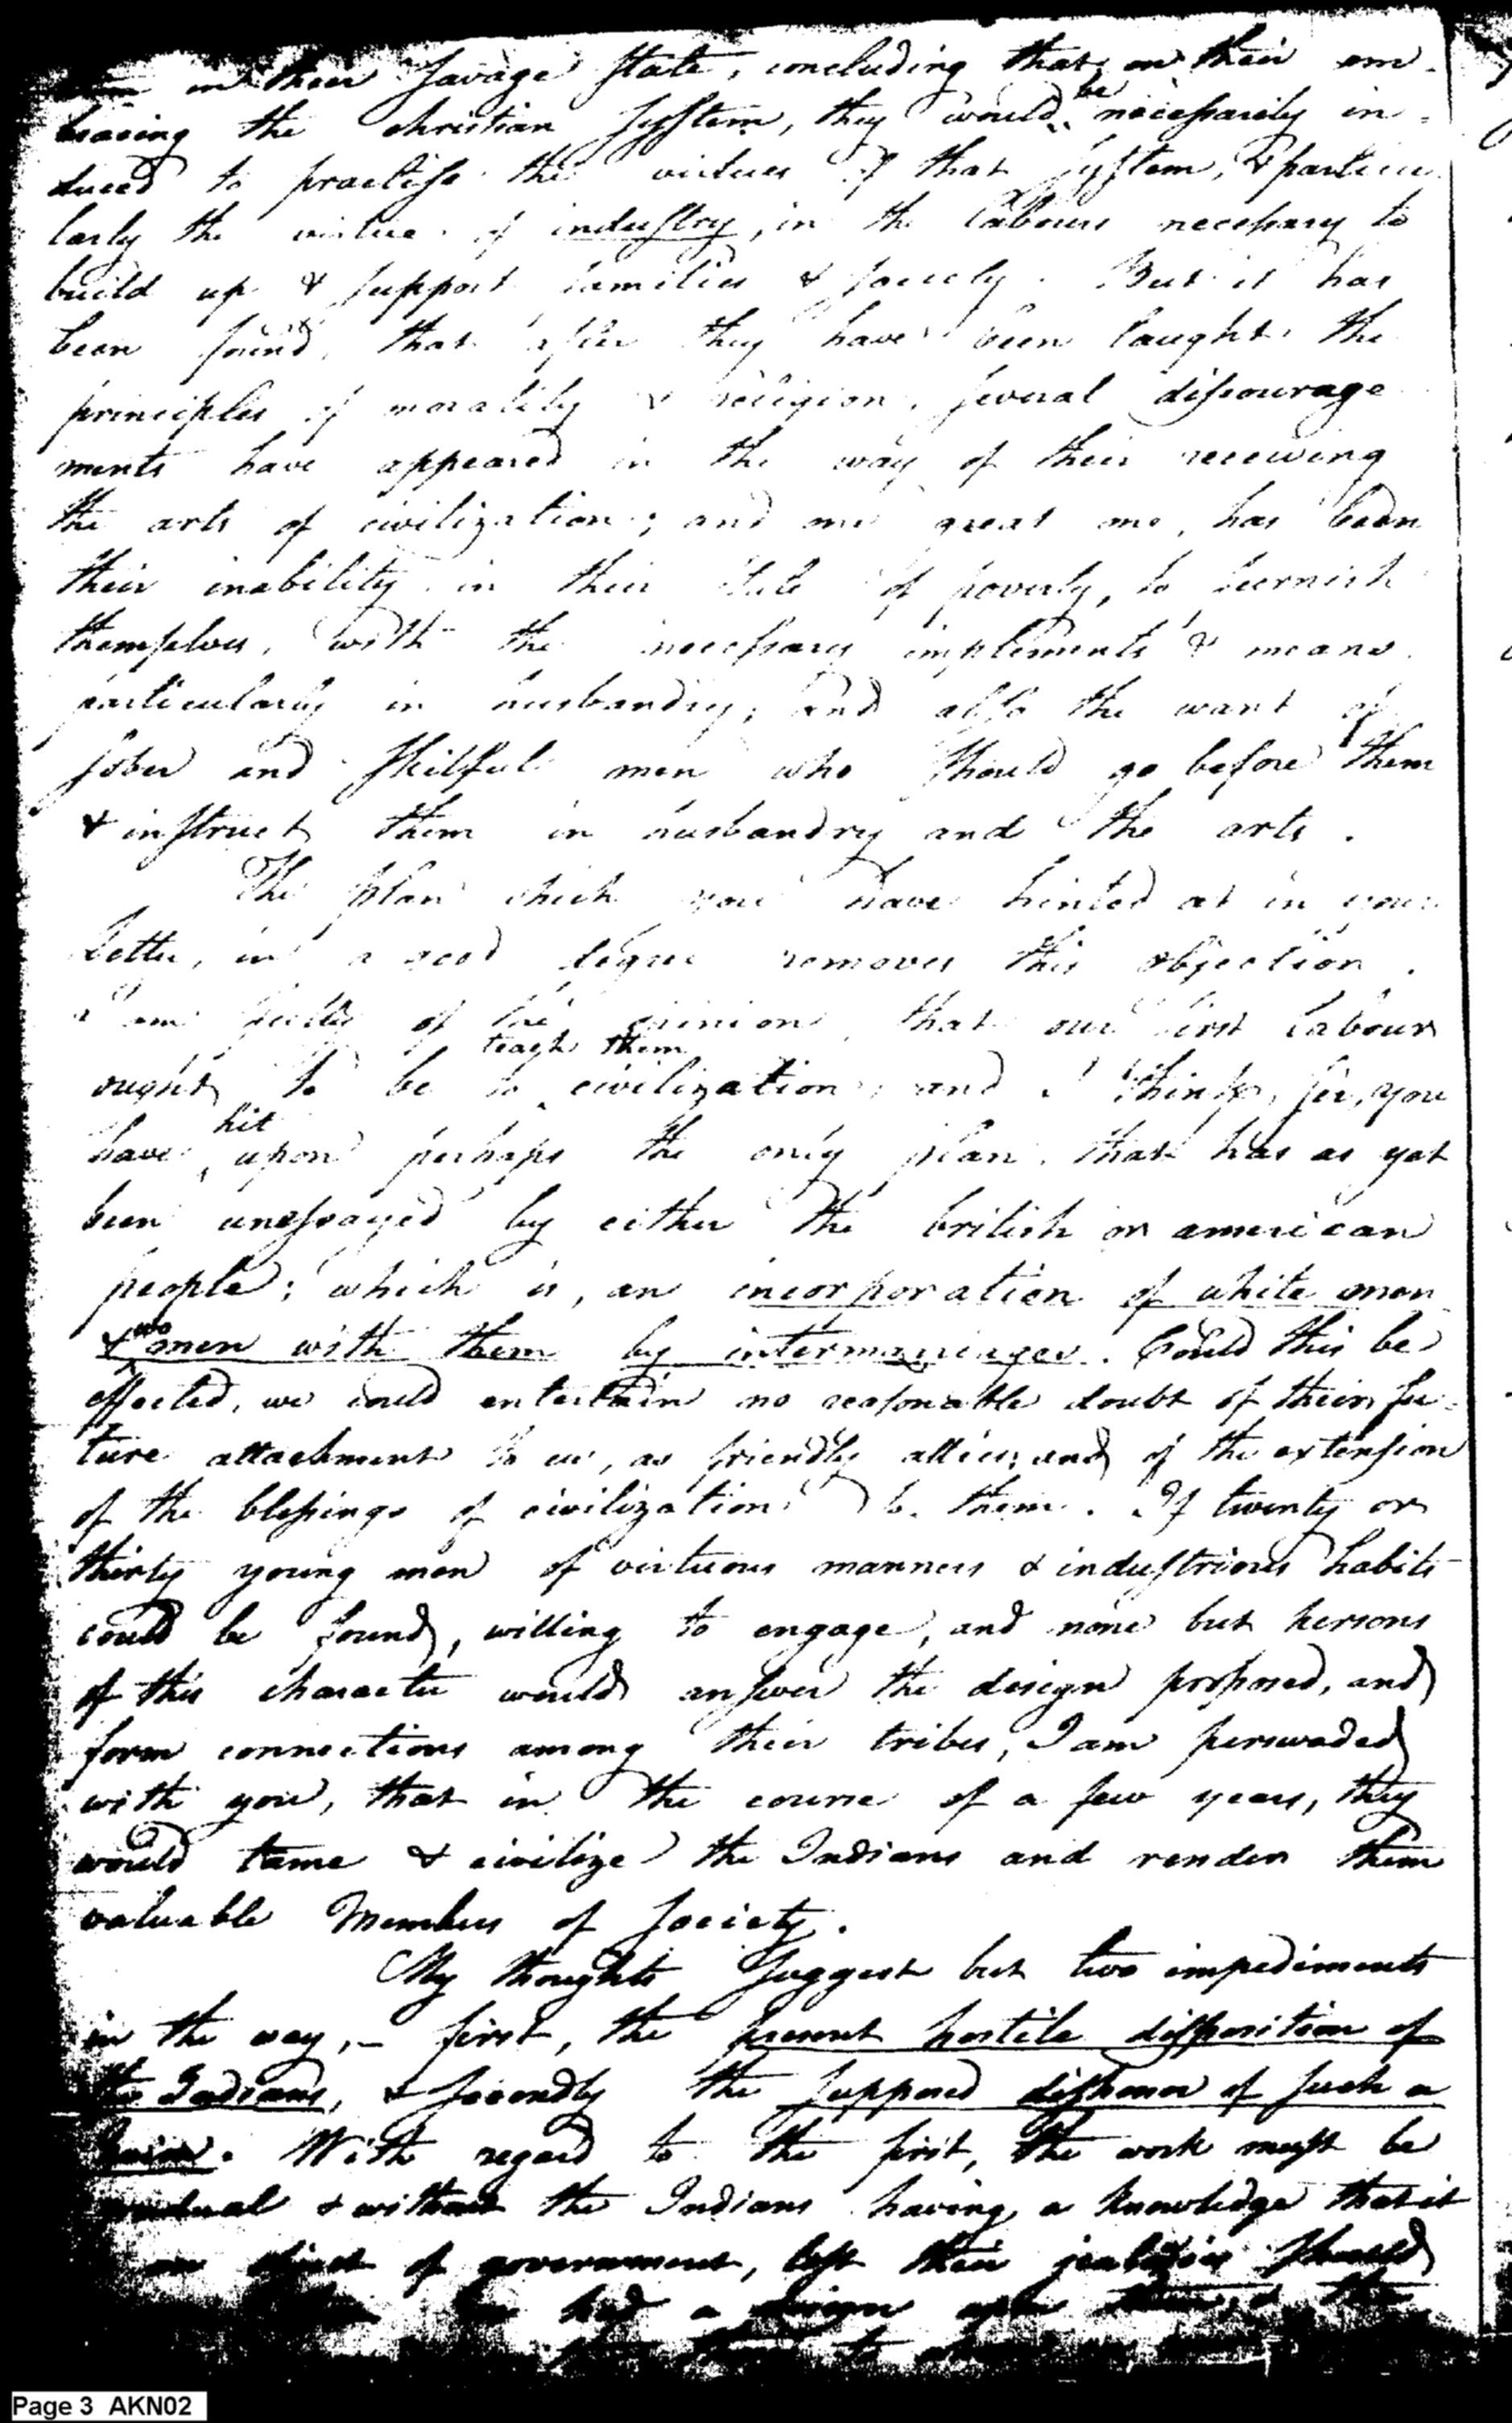 in their savage state, concluding that on their em-
bracing the christian system, they would be necessarily in-
duced to practise the virtues of that system, & particu
larly the virtue of industry, in the labours necessary to
build up & support families & society. But it has
been found, that after they have been taught the
principles of morality & religion, several discourage
ments have appeared in the way of their receiving
the arts of civilization; and one great one, has been
their inability in their state of poverty, to furnish
themselves, with the necessary implements & means
particularly in husbandry; and also the want of
sober and skilful men who should go before them
& instruct them in husbandry and the arts.
The plan which you have hinted at in your
letter, in a good degree removes this objection.
I am fully of the opinion that our first labour
ought to be to teach them civilization; and I think, sir, you
have hit upon perhaps the only plan that has as yet
been unessayed by either the british or american
people; which is, an incorporation of white men
& women with them by intermarriages. Could this be
effected, we could entertain no reasonable doubt of their fu-
ture attachment to us, as friendly allies; and of the extension
of the blessings of civilization to them. If twenty or
thirty young men of virtuous manners & industrious habits
could be found, willing to engage, and none but persons
of this character would answer the design proposed, and
form connections among their tribes, I am perswaded
with you, that in the course of a few years, they
would tame & civilize the Indians and render them
valuable Members of society.
My thoughts suggest but two impediments
in the way, – first, the present hostile disposition of
the Indians, & secondly the supposed dishonor of such a
. With regard to the first, the work must be
gradual & without the Indians having a knowledge that it
of government, lest their jealousies should
had a design upon them, & the
Page 3 AKN02